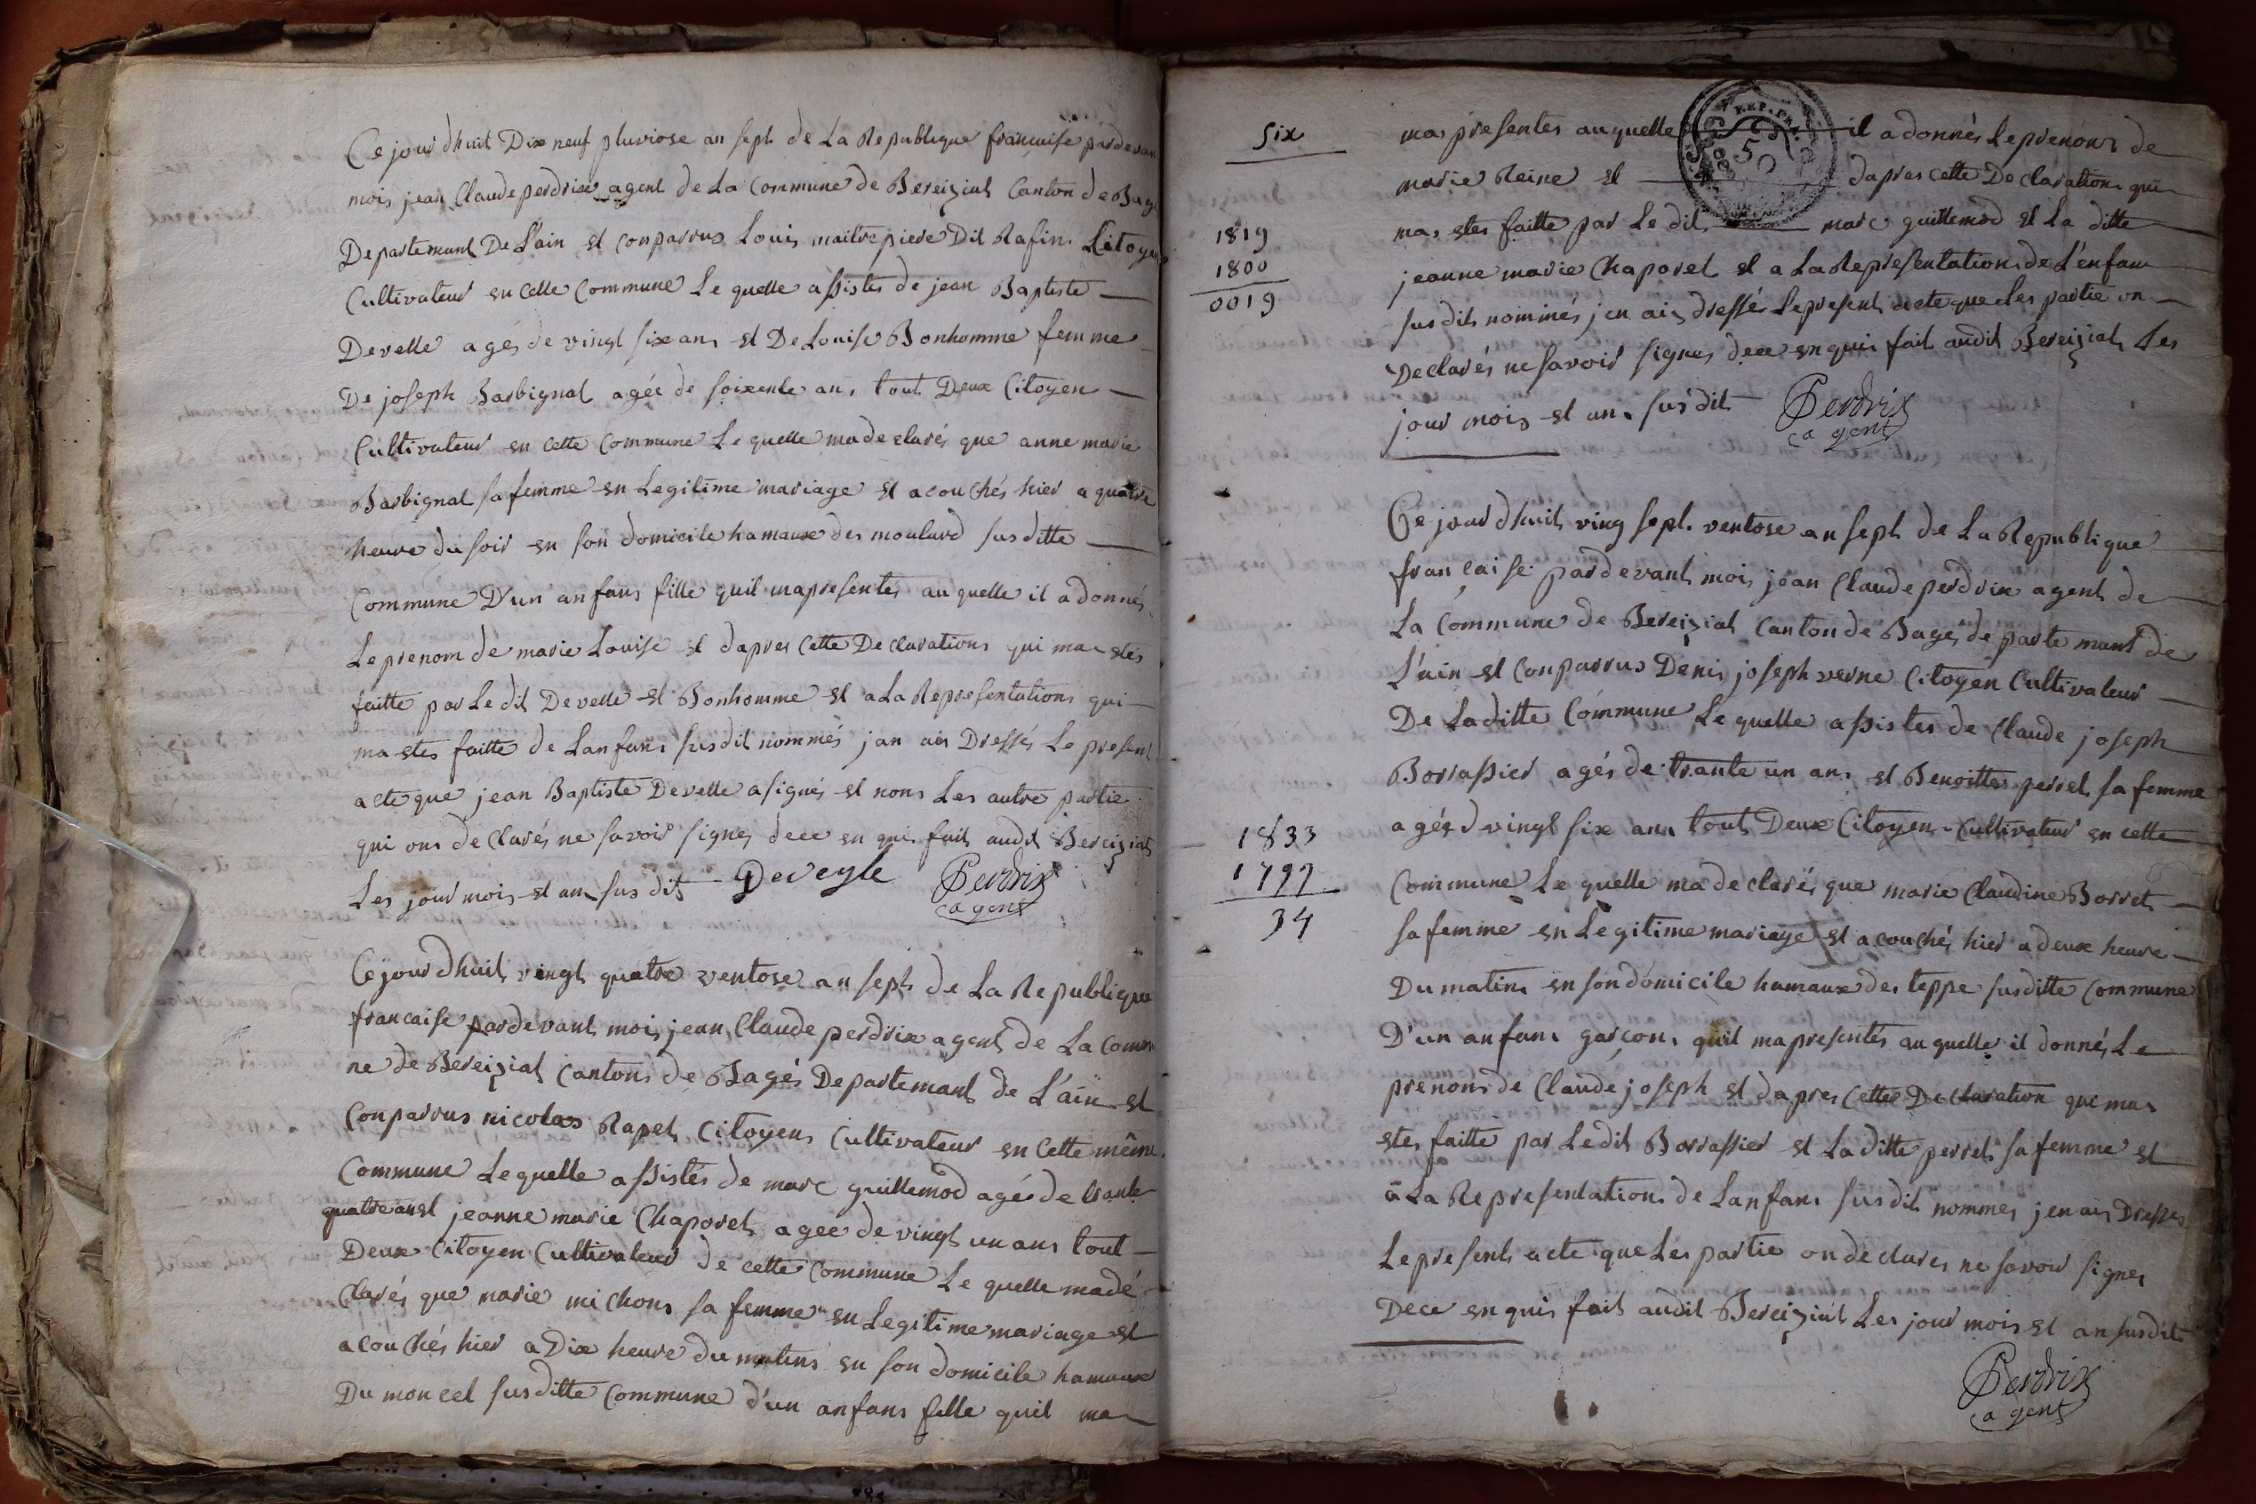 Ce jour dhuit Dix neuf pluviose an sept de La Republique francaise pardevan
mois jean Claude perdrix agent de La Commune de Bereiziat Canton de Bage
Departemant De L'ain et conparrus Louis maitrepiere Dit Rafin Citoyen
Cultivateur en Cette Commune Le quelle assistes de jean Baptiste
Develle agés de vingt six ans et De Louise Bonhomme femme
De joseph Barbignat agée de soixente ans tout Deux Citoyen
Cultivateur en cette Commune Le quelle ma declarés que anne marie
Barbignat sa femme en Legitime mariage et acouchés hier a quatre
heure du soir en son domicile hamaux des moulard susditte
Commune D'un anfans fille quil mapresentes au quelle il a donnés
Le prenom de marie Louise et dapres Cette Declarations qui ma etés
faitte par Le dit Develle et Bonhomme et a La Representations qui
ma etes faitte de Lanfans susdit nommés jan ais Dressés Le present
acte que jean Baptiste Develle a signés et nons Les autre partie
qui ons declarés ne savoir signes dece en quis fait audit Bereiziat
Les jour mois et an sus dit Deveyle Perdrix
agent
Ce jour dhuit vingt quatre ventose an sept de La Republique
francaise pardevant mois jean Claude perdrix agent de La Comu
ne de Bereiziat Cantons de Bagés Departemant de L'ain et
Conparrus nicolas Rapet Citoyens Cultivateur en Cette même
Commune Le quelle assistés de marc guillemod agés de trante
quatre an et jeanne marie Chaporet agée de vingt un ans tout
Deux Citoyen Cultivateur de cette Commune Le quelle madé
clarés que marie michons sa femme en Legitime mariage et
acouchés hier a Dix heure du matins en son domicile hamaux
Du moncel susditte Commune d'un anfans fille quil ma
six
mas presentes au quelle il a donnés Le prenons de
REP. FRA.
50
marie Reine et dapres cette Declarations qui
mas etes faitte par Le dit marc guillemod et La ditte
jeanne marie Chaporet et a La Representations de L'enfans
susdit nommés jen ais dressés Le present acte que Les partie on
Declarés ne savoir signes dece en quis fait audit Bereiziat Les
jour mois et ans susdit Perdrix
agent
1819
1800
0019
Ce jour dhuit ving sept ventose an sept de La Republique
francaise pardevant mois jean Claude perdrix agent de
La Commune de Bereiziat Canton de Bagés departemant de
L'ain et Conparrus Denis joseph verne Citoyen Cultivateur
De Laditte Commune Le quelle assistes de Claude joseph
Borrassier agés de trante un ans et Benoittes perret sa femme
agés d vingt six ans tout Deux Citoyens Cultivateur en cette
Commune Le quelle ma declarés que marie Claudine Borret
sa femme en Legitime mariage et acouchés hier a deux heure
Du matins en son domicile hamaux des teppe susditte Commune
D'un anfans garçons quil mapresentés au quelle il donnés Le
prenons de Claude joseph et dapres Cette Declaration que mas
etes faitte par Ledit Borrassier et Laditte perret sa femme et
a La Representations de Lanfans susdit nommés jen ais Dressés
Le present acte que Les partie on declares ne savoir signes
Dece en quis fait audit Bereiziat Les jour mois et an susdit
Perdrix
agent
1833
1799
34